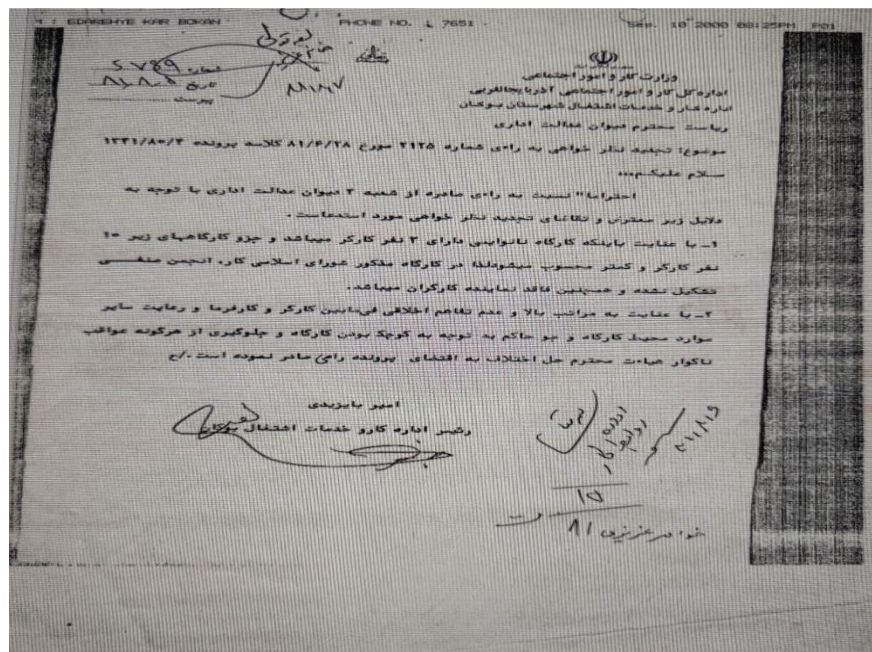 M : EDAREHYE KAR BOKAN PHONE NO. : 7651 Sep. 10 2000 08:25PM P01
بسمه تعالی
وزارت کار و امور اجتماعی
اداره کل کار و امور اجتماعی آذربایجانغربی
اداره کار و خدمات اشتغال شهرستان بوکان
شماره ۵۷۸۹
تاریخ
پیوست
ریاست محترم دیوان عدالت اداری
موضوع: تجدید نظر خواهی به رای شماره ۲۱۲۵ مورخ ۸۱/۶/۲۸ کلاسه پرونده ۱۲۳۱/۸۰/۳
سلام علیکم...
احتراما" نسبت به رای صادره از شعبه ۳ دیوان عدالت اداری با توجه به
دلایل زیر معترض و تقاضای تجدید نظر خواهی مورد استدعاست.
۱- با عنایت باینکه کارگاه نانوایی دارای ۳ نفر کارگر میباشد و جزو کارگاههای زیر ۱۰
نفر کارگر و کمتر محسوب میشود لذا در کارگاه مذکور شورای اسلامی کار، انجمن صنفی
تشکیل نشده و همچنین فاقد نماینده کارگران میباشد.
۲- با عنایت به مراتب بالا و عدم تفاهم اخلاقی فیمابین کارگر و کارفرما و رعایت سایر
موارد محیط کارگاه و جو حاکم به توجه به کوچک بودن کارگاه و جلوگیری از هرگونه عواقب
ناگوار هیات محترم حل اختلاف به اقتضای پرونده رای صادر نموده است./ح
امیر بایزیدی
رئیس اداره کار و خدمات اشتغال بوکان